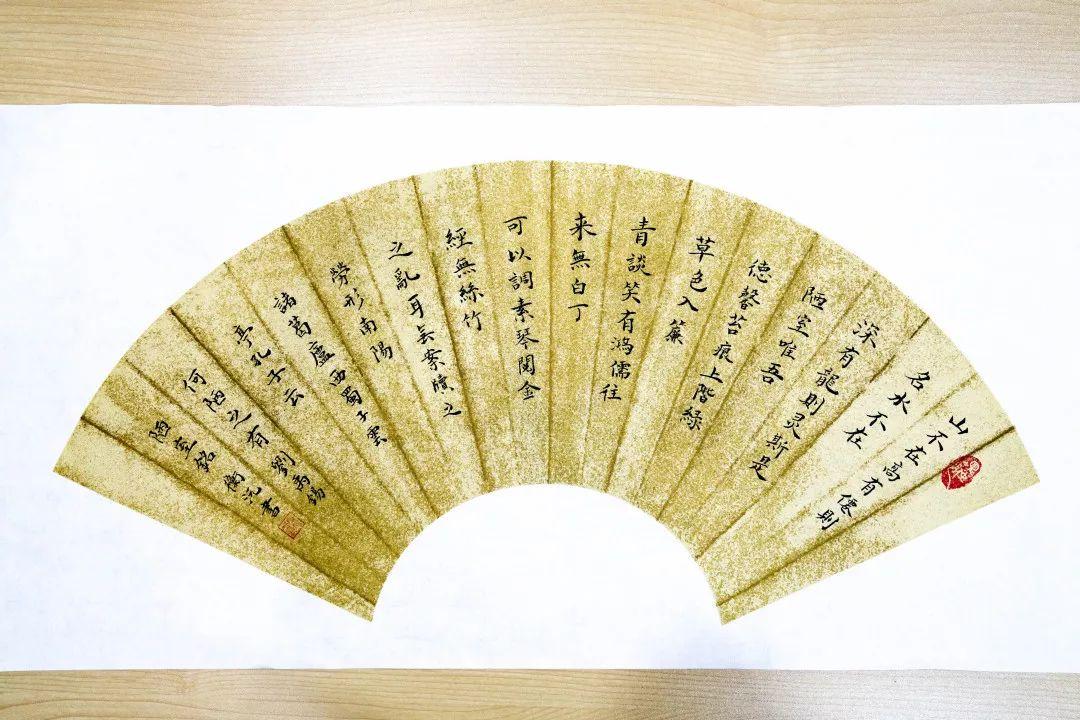 山不在高有僊則
名水不在
深有龍則灵斯是
陋室唯吾
德馨苔痕上階緑
草色入簾
青談笑有鸿儒往
来無白丁
可以調素琴閱金
經無絲竹
之亂耳無案牘之
勞形南陽
諸葛廬西蜀子雲
亭孔子云
何陋之有劉禹錫
陋室銘